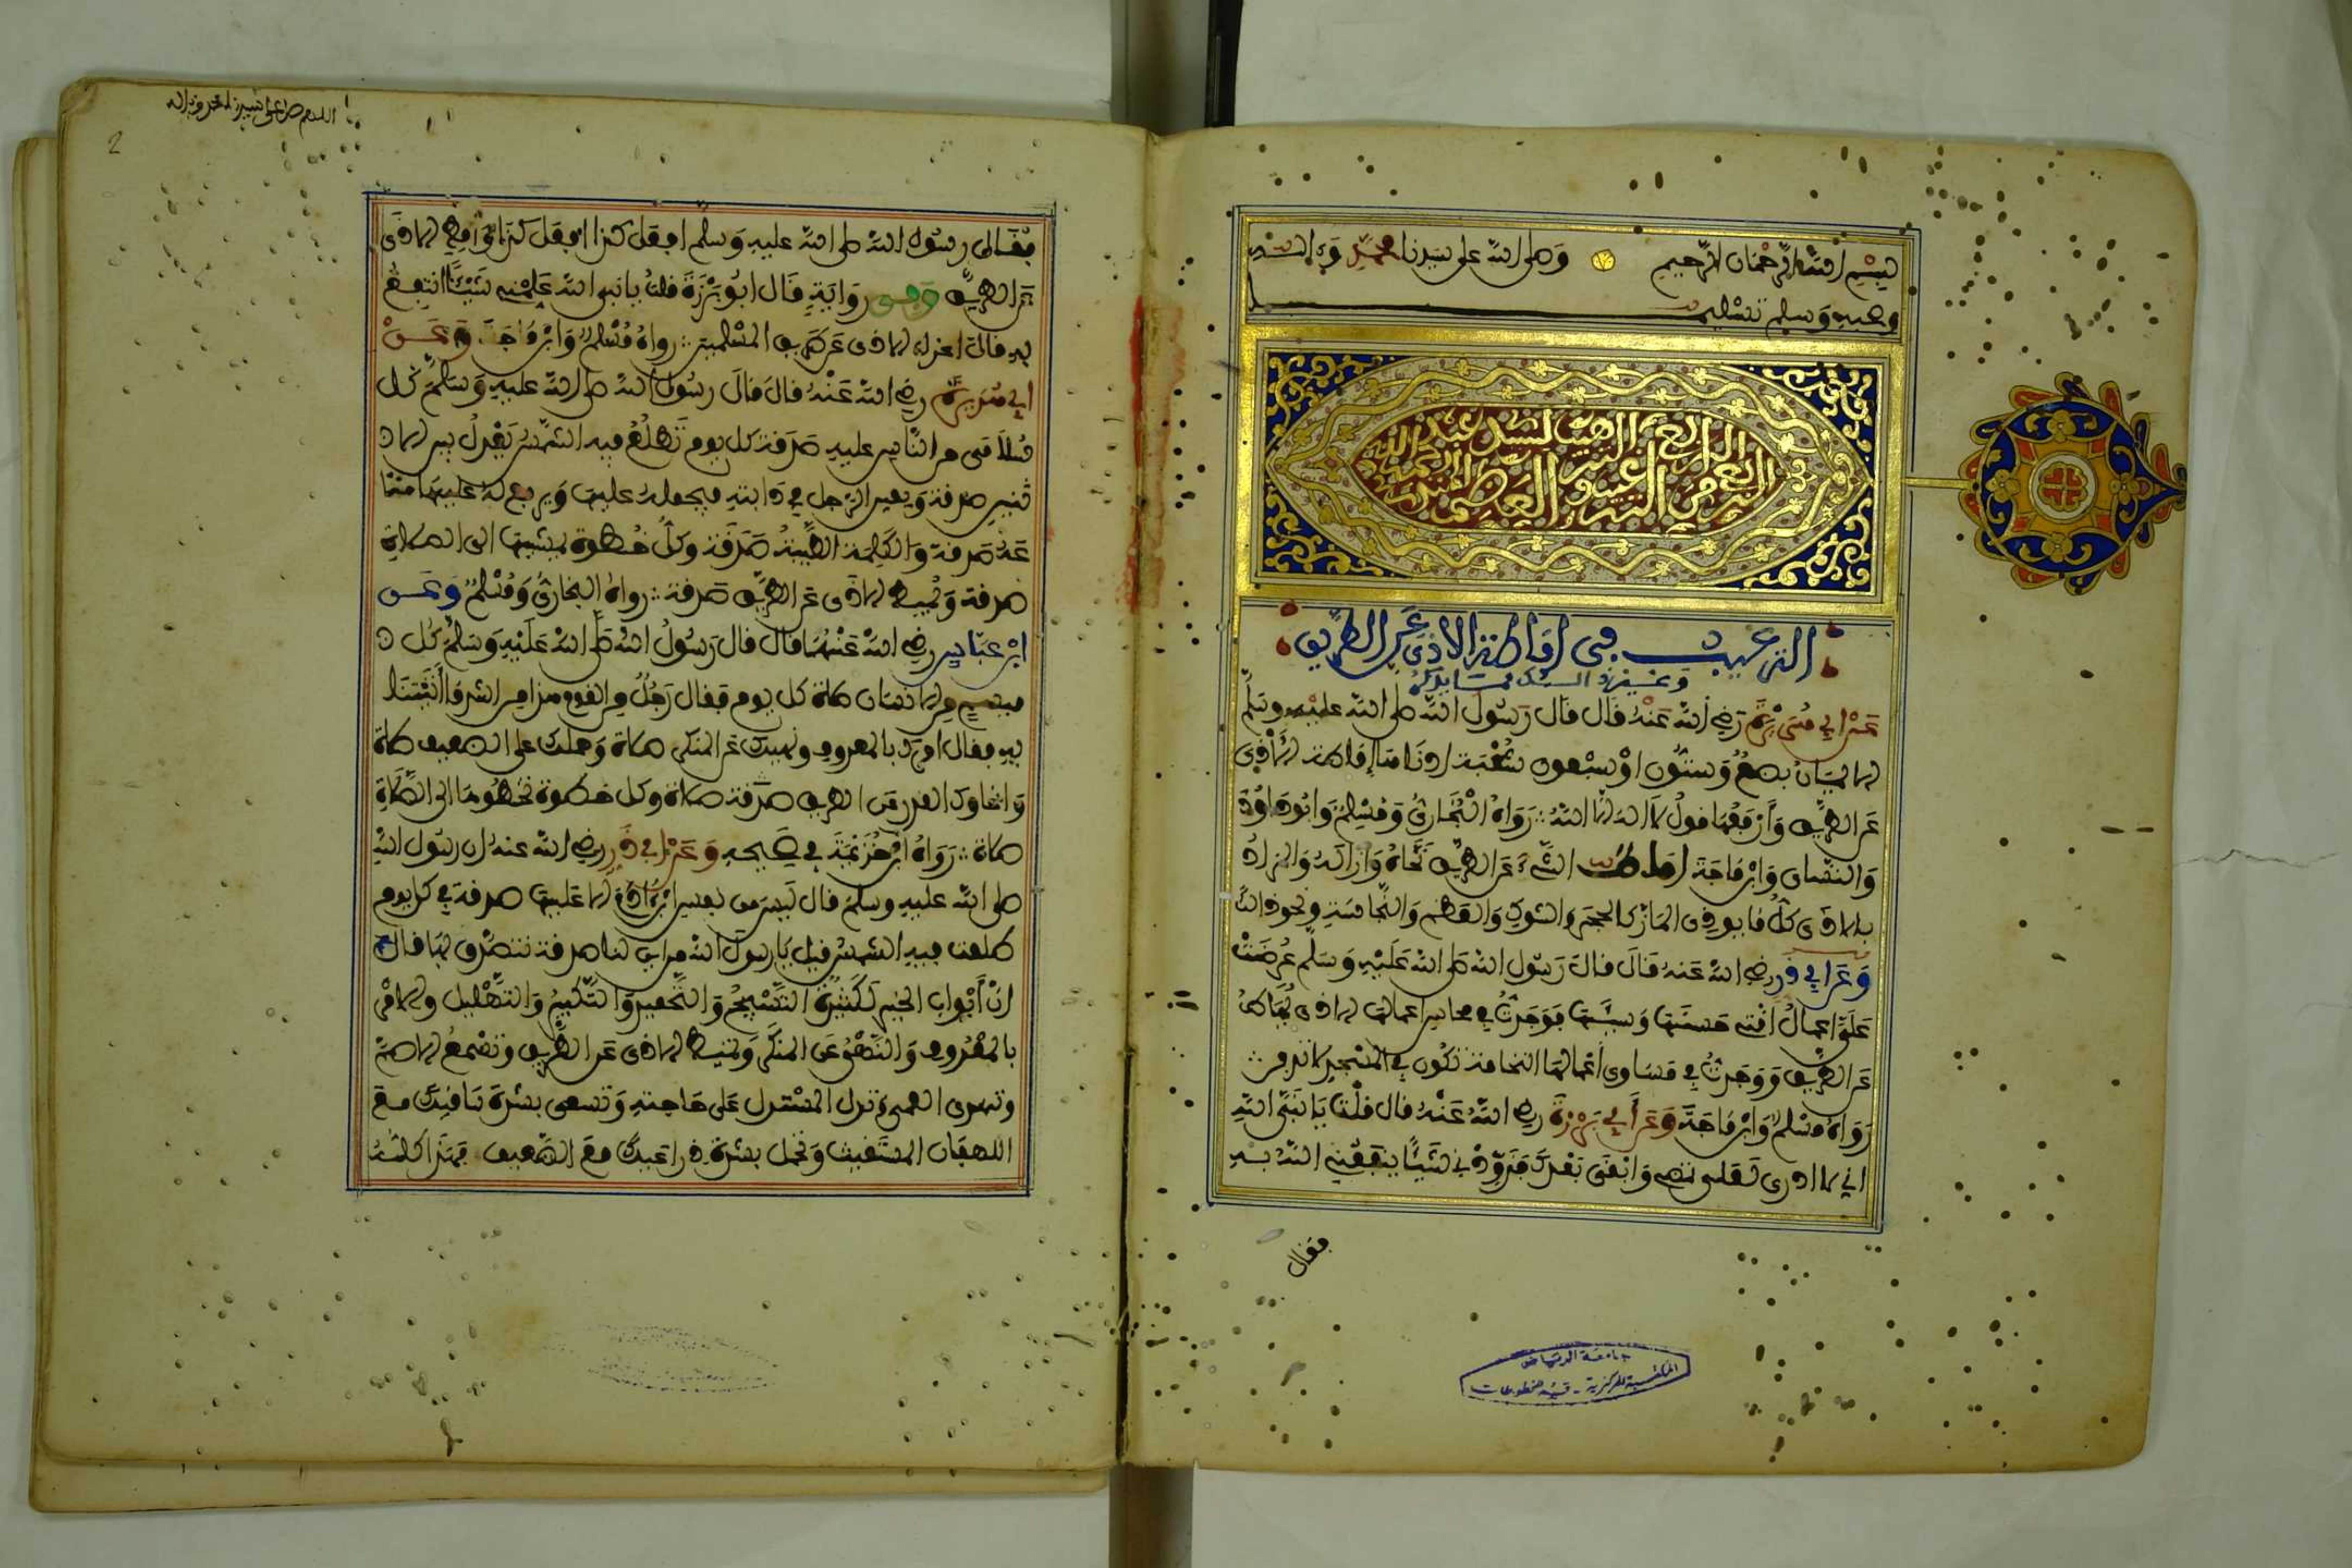 بِسْمِ اللَّهِ الرَّحْمَانِ الرَّحِيمِ وَصلى الله على سَيدنا مُحَمَّدٍ وَءاله
وصحبه وَسلم تَسْلِيما
الترغيب فى إماطة الاذى عَنِ الطريق
وغير ذلك مما يذكر
عَنْ أبي هُرَيْرَةَ رَضِيَ اللهُ عَنْهُ قَالَ قَالَ رَسُولُ اللهِ صلى الله عليه وسَلَّم
الايمَانُ بضعٌ وَستُّون اوْ سبْعون شُعْبَة ادنَاهَا إماطة الأذى
عَن الطريق وَأرْفَعُهَا قولُ لا اله الا اللهُ رَوَاهُ الْبُخَارِيُّ وَمُسْلِمٌ وَابُو دَاوُدَ
وَالنسَاى وَابْن مَاجَة أماطَ الشيء عَن الطريق نَحَّاهُ وَأزالهُ وَالمرادُ
بالاذى كلُّ مَا يوذى المارَّ كالحجَر والشوك وَالعَظم وَالنَّجاسَة ونحو ذالك
وَعَن أبي ذر رضي الله عَنه قَالَ قالَ رَسُول الله صَلى اللهُ عَلَيْهِ وَسَلَّم عُرِضَتْ
عَلَيَّ اعمالُ امَّتى حَسَنها وَسَيِّئها فَوَجَدْتُ في محاسِن اعمالها الاذى يُمَاطُ
عَن الطريق وَوَجَدْتُ في مَسَاوى أعْمالهَا النخامَة تكُون في المسْجِد لا تدفن
رَوَاهُ مسْلم وَابْن مَاجَة وَعَن أَبي بَرْزَةَ رضي اللهُ عَنْهُ قال قلْتُ يَا نَبِيَّ اللهِ
اني لا ادرى لعَلى تمضى وَابْقَى بَعْدكَ فَزَوِّدْني شَيْئًا يَنْفَعُنِي اللهُ بِهِ
فقال
جامعة الرياض
المكتبة المركزية - قسم المخطوطات
2
اللهم صل على سيدنا محمد وءاله
فَقَالَ رسُول الله صلى الله عليه وَسلم افعَل كذا افعَل كذا وَأمِطِ الاذَى
عَن الطريق وَفى رِوَايَةٍ قَالَ ابُو بَرْزَةَ قلتُ يا نبي الله عَلِّمْنِي شَيْئًا انتفِعُ
به قالَ اعزل الاذى عَن طريق المسْلمين رواهُ مُسْلمٌ وَابْن مَاجَة وَعَنْ
أبي هُرَيرة رضي الله عَنْهُ قالَ قالَ رسُولُ الله صلى الله عليه وَسَلَّم كل
سُلاَمَى من النَّاس عليه صَدقة كل يوم تَطلُعُ فيه الشمْسُ يَعْدِلُ بين الاث
نين صدقة وَيعين الرجل في دابته فيحمله عليها وَيرفع له عليها متا
عَهُ صَدقة وَالكلِمَة الطَّيِّبَة صَدَقَة وكل خُطوة يمشيها الى الصلاة
صدقة وَيميط الاذَى عَن الطريق صَدقة رواهُ البخارىُّ وَمُسْلمٌ وَعَن
ابْن عَبَّاس رضي الله عَنْهُمَا قالَ قال رَسُولُ الله صَلى اللهُ عَلَيْهِ وَسَلَّمَ عَلى كُل
مِيسم من الانسان صلاة كل يوم فقال رَجُلٌ من القوم هذا من اشد ما أنبَأتنا
به فقال امرك بالمعروف ونهيك عَن المنكر صلاة وَحملك على الضعيف صلاة
وَانحاوك القذر عن الطريق صَدَقة صلاة وكل خطوة تخطوهَا الى الصَّلاة
صلاة رَوَاهُ ابْن خُزَيْمَة في صَحِيحِهِ وَعَن أبي ذَر رضي الله عنه ان رسُول الله
صلى الله عليه وسلم قال لَيسَ من نفس ابْن آدَمَ الا عَليها صدقة في كل يوم
طلعت فيه الشمسُ قيل يَا رسُول الله من اين لنا صدقة نتصَدَّق بهَا قال
انَّ أَبْوابَ الخير لَكَثِيرَةٌ التَّسْبِيحُ وَالتَّحْمِيدُ وَالتَّكْبِيرُ وَالتَّهْلِيل والامْر
بالمَعْرُوف وَالنَّهْيُ عَن المنكَر وَتُميط الاذى عَن الطَّرِيق وَتُسْمِعُ الاصَمَّ
وتهدى الاعمى وتدل المُسْتدل عَلى حَاجته وَتسعى بشدَّة سَاقيك مع
اللهفان المستَغيث وَتحمل بشدة ذراعَيك مَع الضَّعيف فَهَذا كلهُ